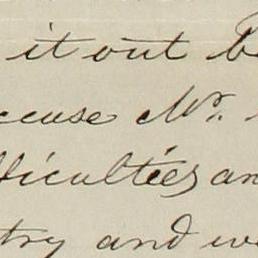 it out b
ccuse Mr.
fficulties an
try and w